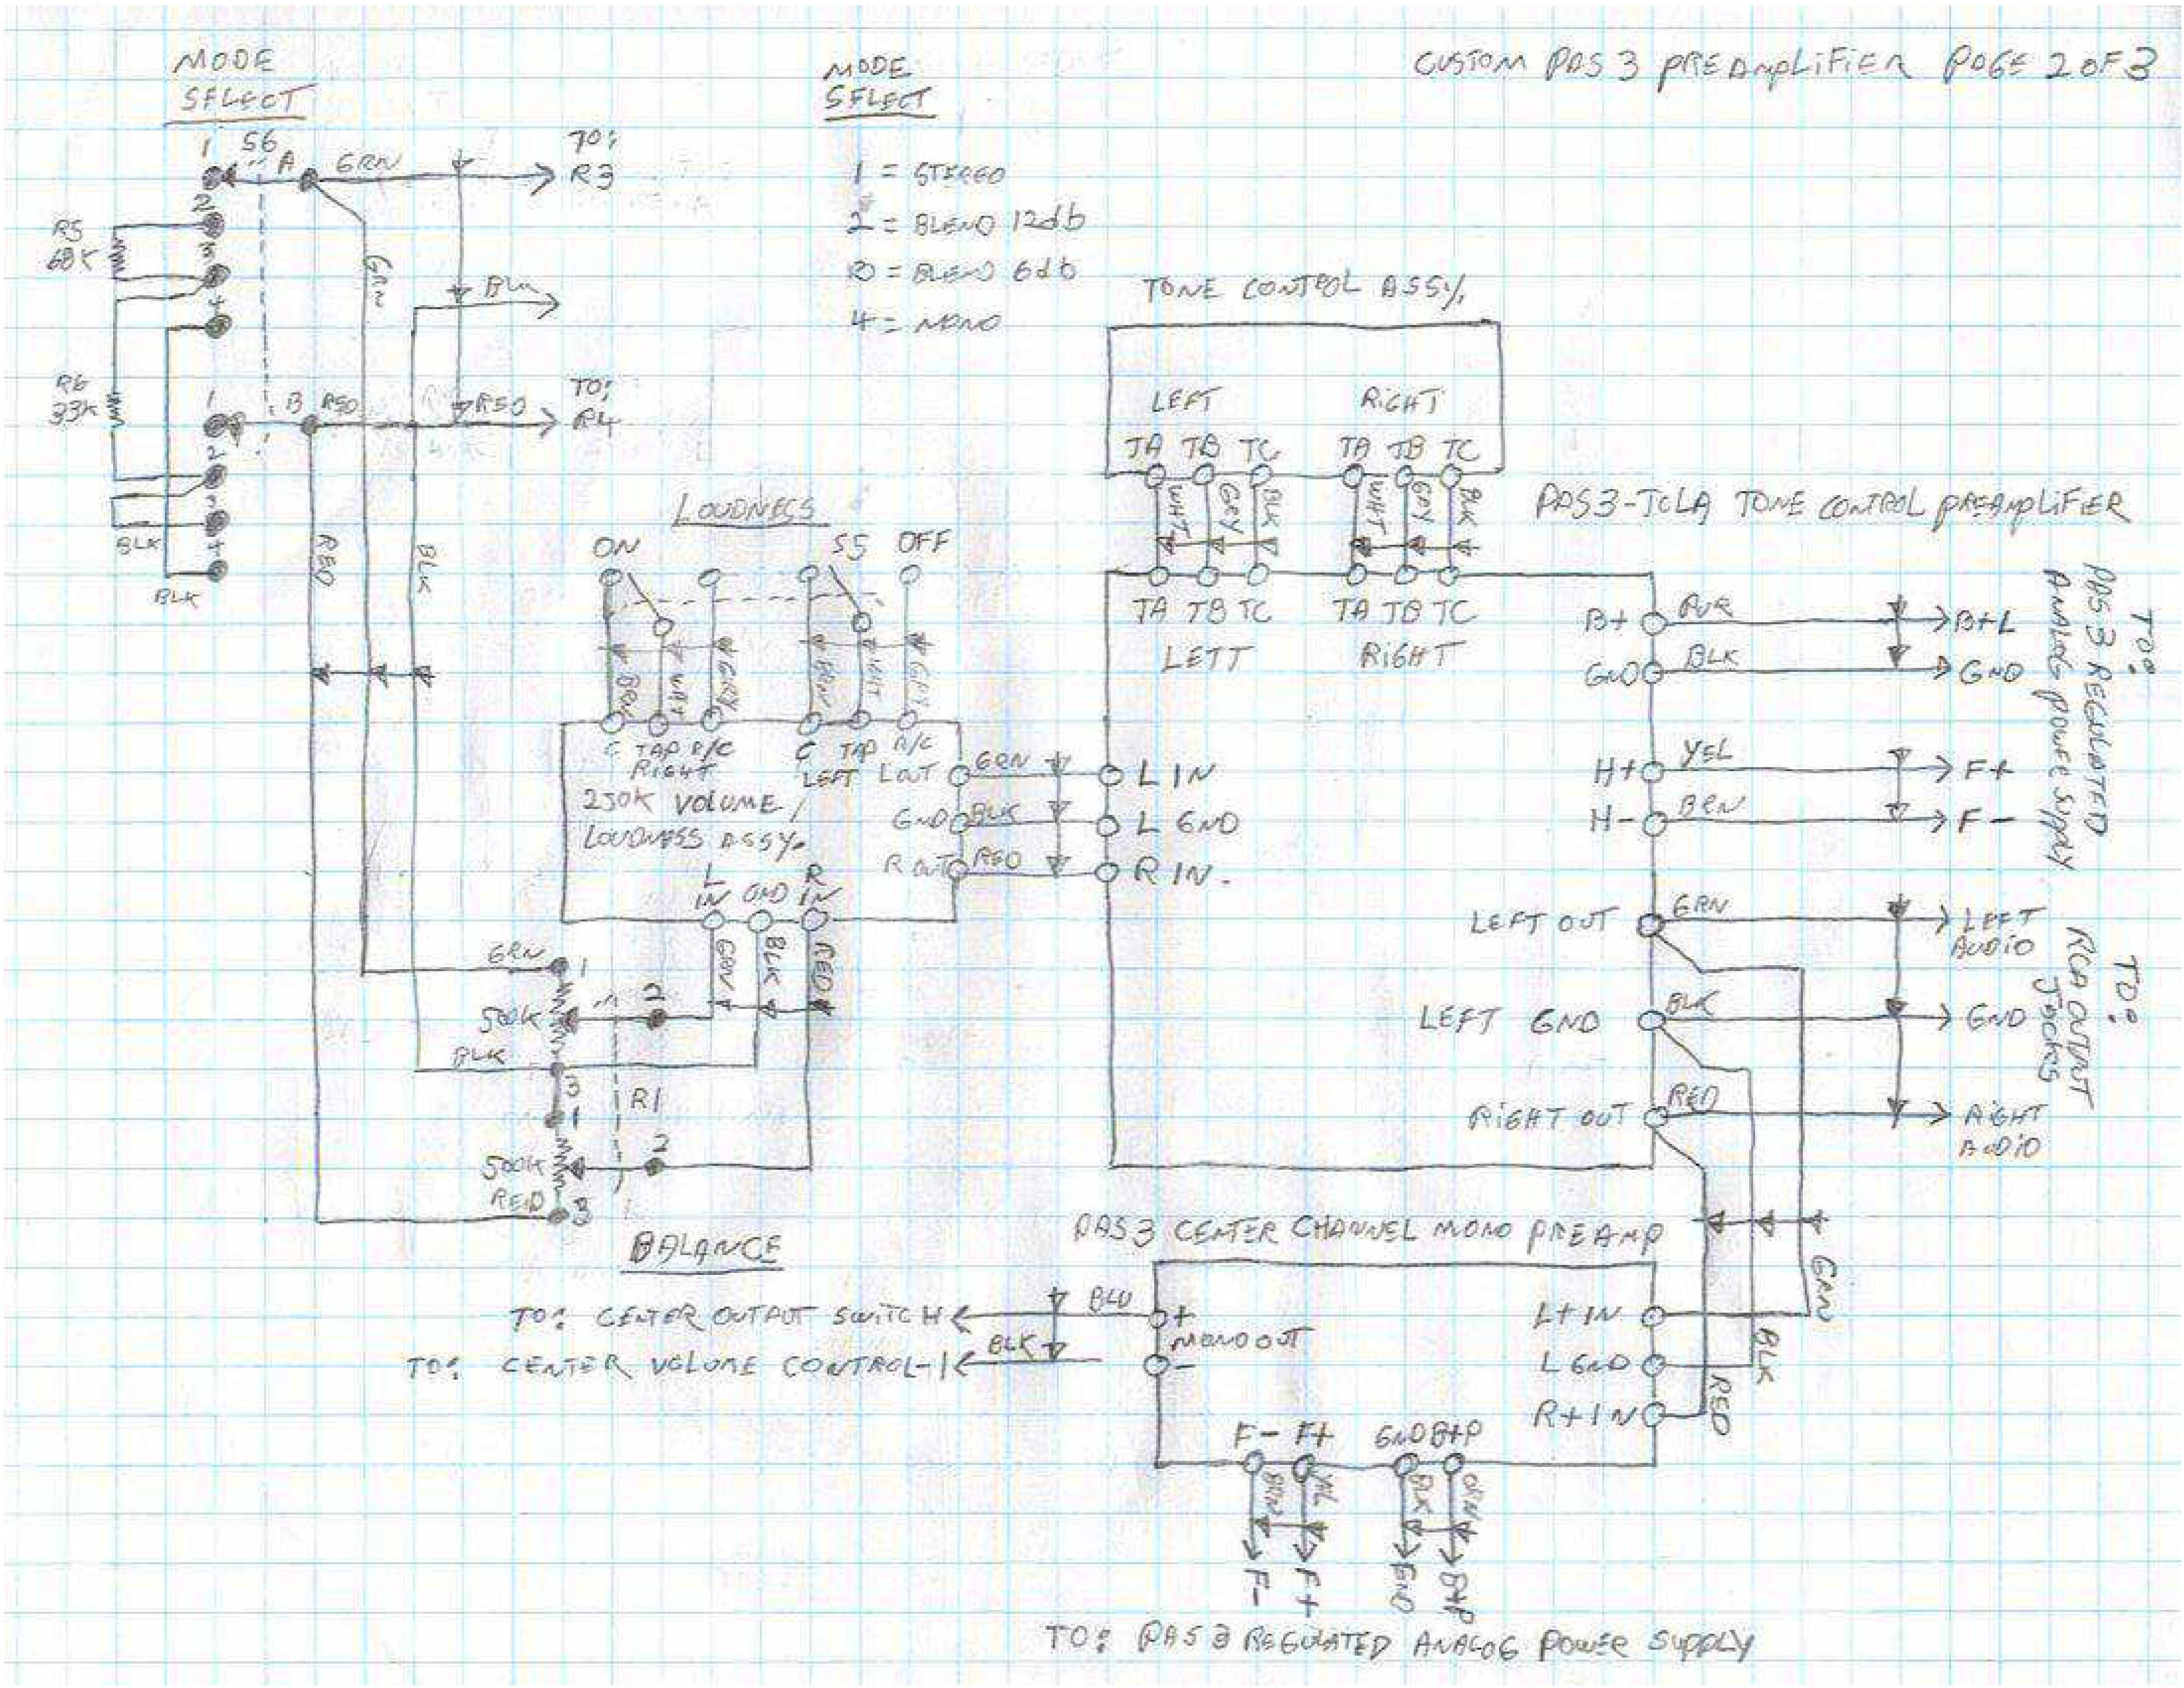 CUSTOM PAS 3 PREAMPLIFIER PAGE 2 OF 3
MODE
SELECT
1 S6
A GRN
TO:
R3
2
R5
68K
3
GRN
BLK
4
R6
33K
1
B RED
RED
TO:
R4
2
3
BLK
4
BLK
RED
BLK
MODE
SELECT
1 = STEREO
2 = BLEND 12db
3 = BLEND 6db
4 = MONO
LOUDNESS
ON S5 OFF
BRN WHT GRY BRN WHT GRY
C TAP R/C C TAP R/C
RIGHT LEFT L OUT
250K VOLUME /
LOUDNESS ASSY.
GND
R OUT
GRN
BLK
RED
L IN GND R IN
GRN BLK RED
GRN 1
500K 2
BLK
3
1
R1
500K 2
RED 3
BALANCE
TONE CONTROL ASSY.
LEFT RIGHT
TA TB TC TA TB TC
WHT GRY BLK WHT GRY BLK
PAS3-TCLA TONE CONTROL PREAMPLIFIER
TA TB TC TA TB TC
LETT RIGHT
L IN
L GND
R IN.
B+ PUR B+L
GND BLK GND
H+ YEL F+
H- BRN F-
TO:
PAS 3 REGULATED
ANALOG POWER SUPPLY
LEFT OUT GRN LEFT
AUDIO
LEFT GND BLK GND
RIGHT OUT RED RIGHT
AUDIO
TO:
RCA OUTPUT
JACKS
PAS3 CENTER CHANNEL MONO PREAMP
GRN
BLK
RED
L+IN
L GND
R+IN
TO: CENTER OUTPUT SWITCH BLU +
MONO OUT
TO: CENTER VOLUME CONTROL-1 BLK -
F- F+ GND B+P
BRN YAL BLK ORN
F- F+ GND B+P
TO: PAS 3 REGULATED ANALOG POWER SUPPLY